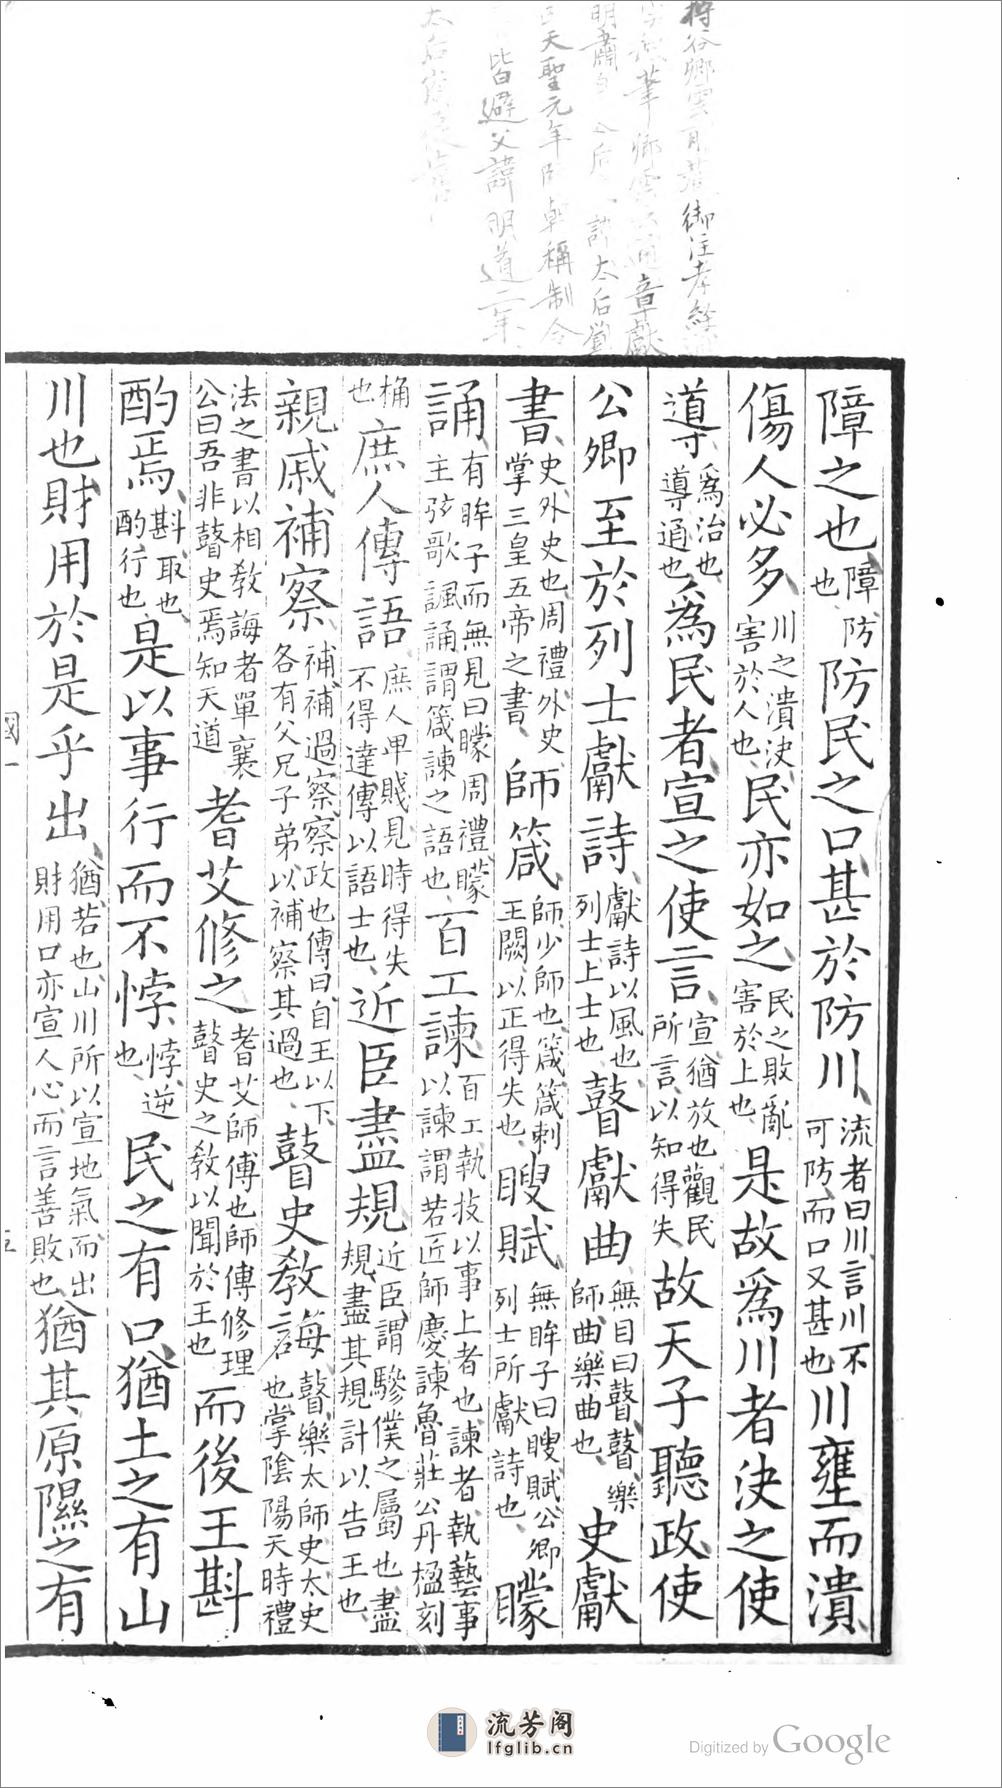 御注孝經
章獻
太后
天聖元年 稱制令
皆避父諱明道二年
障之也障防也防民之口甚於防川流者曰川言川不可防而口又甚也川壅而潰
傷人必多川之潰決害於人也民亦如之民之敗亂害於上也是故爲川者決之使
導爲治也導通也爲民者宣之使言宣猶放也觀民所言以知得失故天子聽政使
公卿至於列士獻詩獻詩以風也列士上士也瞽獻曲無目曰瞽瞽樂師曲樂曲也史獻
書史外史也周禮外史掌三皇五帝之書師箴師少師也箴箴刺王闕以正得失也瞍賦無眸子曰瞍賦公卿列士所獻詩也矇
誦有眸子而無見曰矇周禮矇主弦歌諷誦謂箴諫之語也百工諫百工執技以事上者也諫者執藝事以諫謂若匠師慶諫魯莊公丹楹刻
桷也庶人傳語庶人卑賤見時得失不得達傳以語士也近臣盡規近臣謂驂僕之屬也盡規盡其規計以告王也
親戚補察補補過察察政也傳曰自王以下各有父兄子弟以補察其過也瞽史教誨瞽樂太師史太史也掌陰陽天時禮
法之書以相教誨者單襄公曰吾非瞽史焉知天道耆艾修之耆艾師傅也師傅修理瞽史之教以聞於王也而後王斟
酌焉斟取也酌行也是以事行而不悖悖逆也民之有口猶土之有山
川也財用於是乎出猶若也山川所以宣地氣而出財用口亦宣人心而言善敗也猶其原隰之有
國一
五
流芳阁
lfglib.cn
Digitized by Google